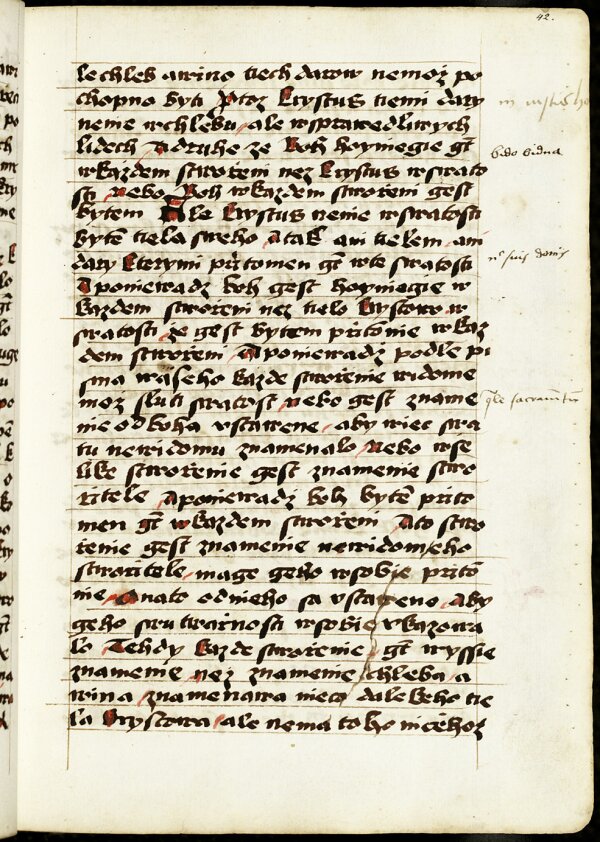 42.
le chleb a wino tiech darow nemoz po
chopno byti Protoz Krystus tiemi dary
nenie w chlebu, ale w sprawedliwych
lidech A druhe ze Boh hoyniegie gt
w kazdem stworzeni nez Krystus w swato
sti, Nebo Boh w kazdem stworzeni gest
bytem Ale Krystus nenie w swatosti
byte tiela sweho, A tak ani tielem, ani
dary kterymi przitomen gt w te swatosti
A poniewadz boh gest hoyniegie w
kazdem stworzeni nez tielo Krystowo w
swatosti, ze gest bytem przitonie w kaz
dem stworzeni A poniewadz podle pi
sma waseho kazde stworzenie widome
moz sluti swatost, nebo gest zname
nie od boha vstawene, aby wiec swa
tu newidomu znamenalo, Nebo wse
like stworzenie gest znamenie stwo
rzitele, A poniewadz boh byte przito
men gt w kazdem stworzeni A to stwo
rzenie gest znamenie newidomeho
stworzitele, mage geho w sobie przito
nie, A na to od nieho sa vstaweno, Aby
geho w sobie vkazowa
lo, Tehdy kazde stworzenie gt wyssie
znamenie, nez znamenie chleba, a
wina, znamenawa nieco dalekeho tie
la Krystowa, ale nema toho
bido bidna
suis donis